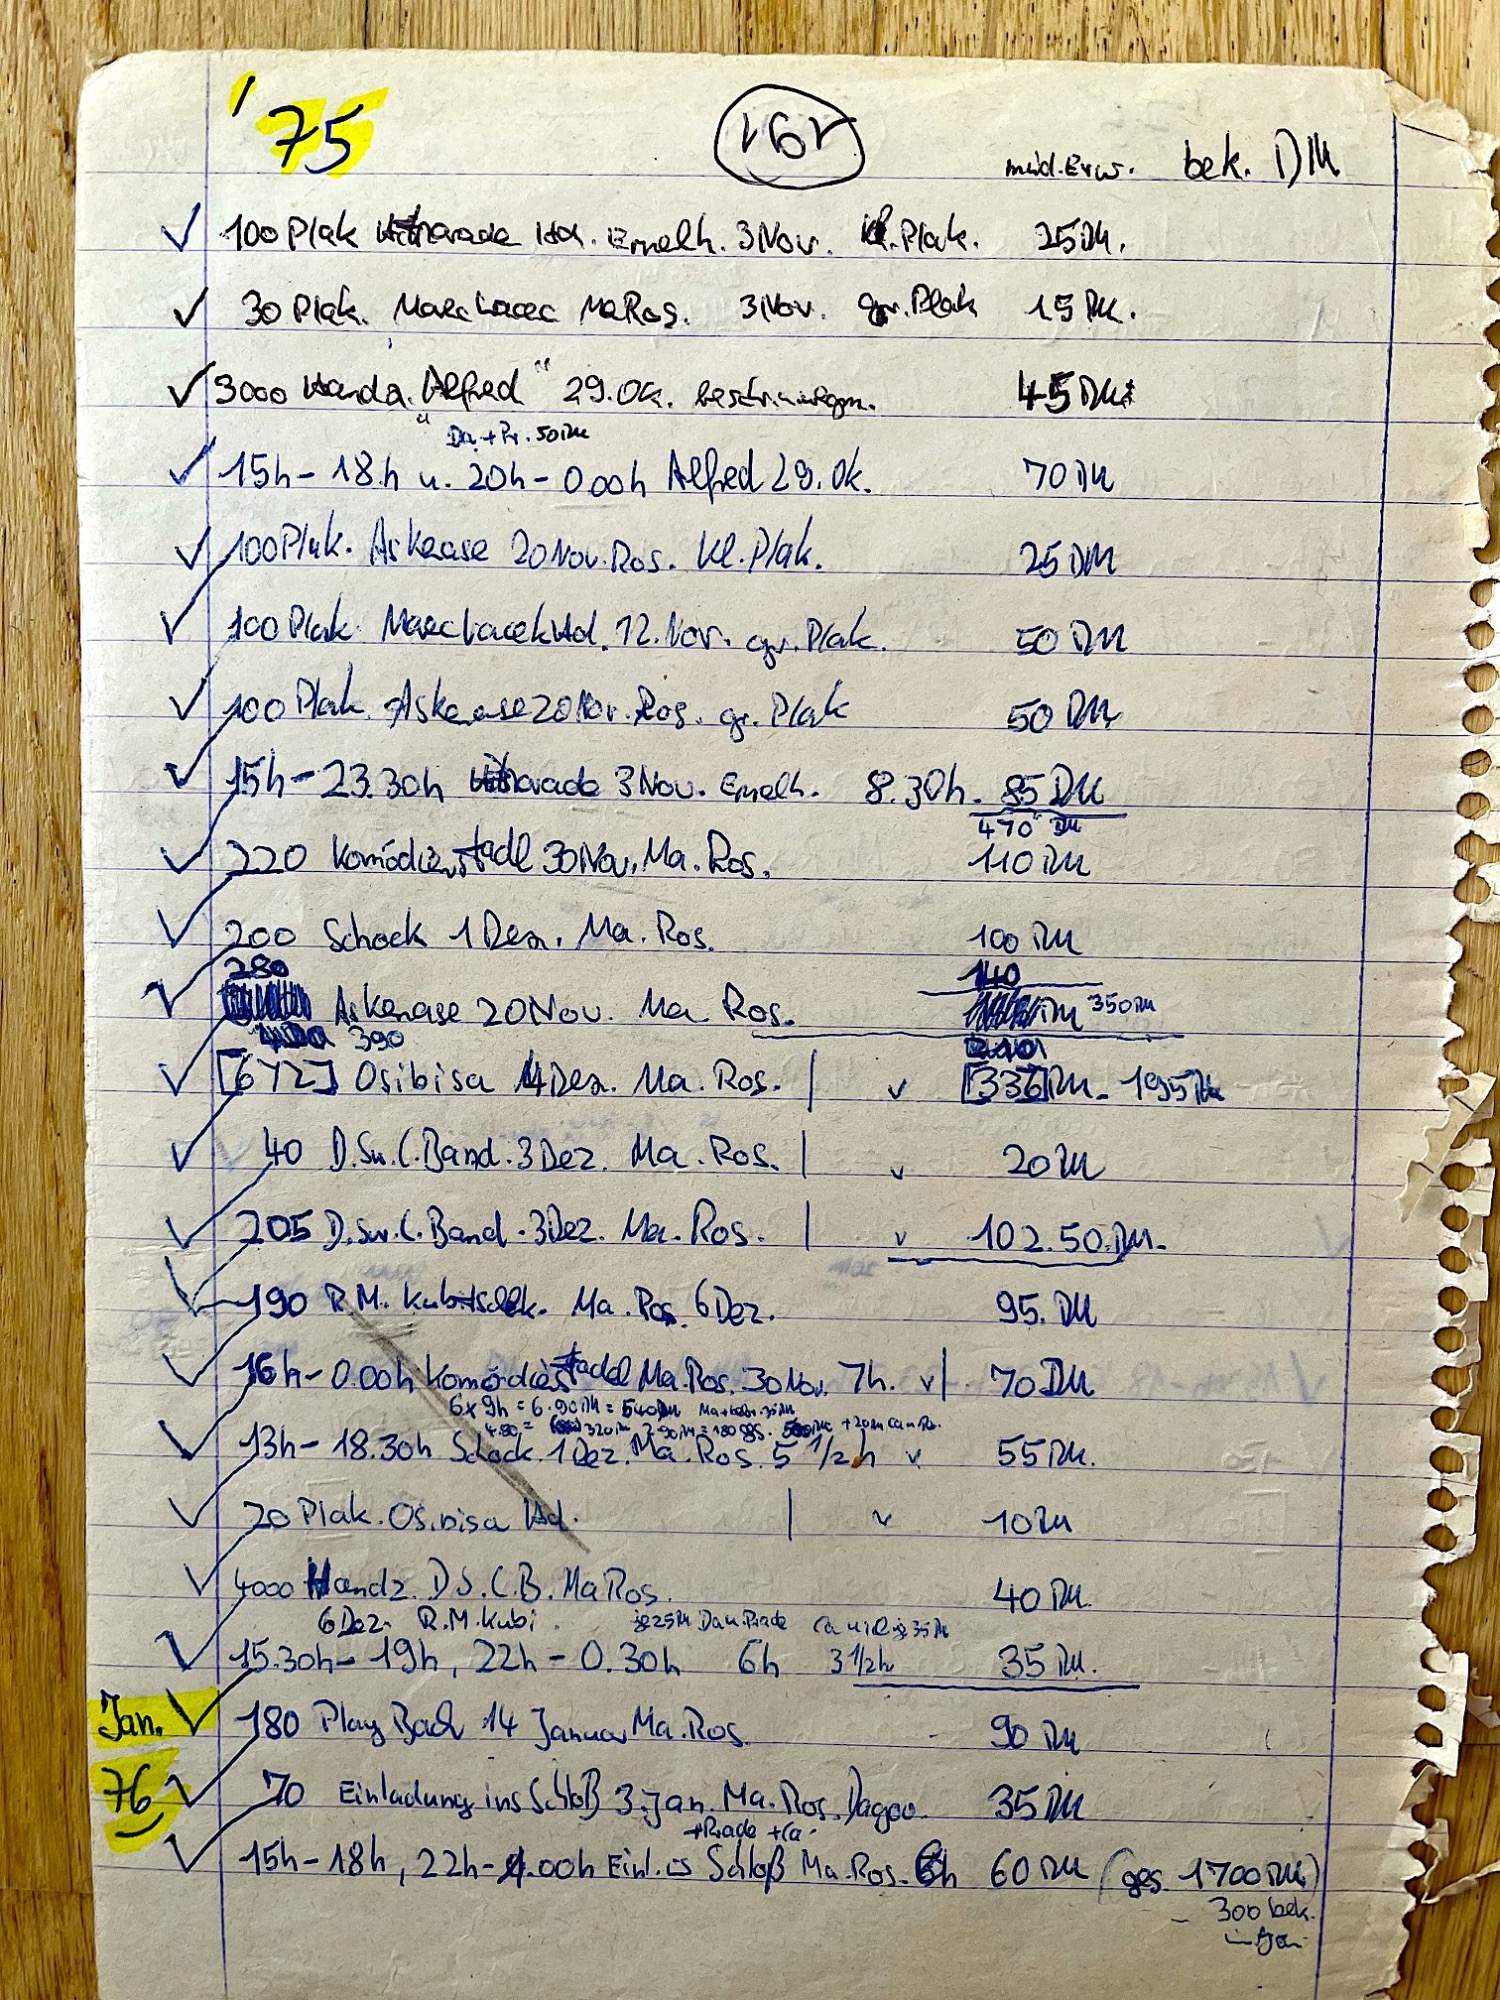 '75
bek. DM
100 Plak Hd. Emelh. 3 Nov. Kl. Plak. 25 DM.
30 Plak. Ma Ros. 3 Nov. gr. Plak 15 DM.
3000 "Alfred" 29. Ok. 45 DM
Da. + Pr. 50 DM
15h - 18h u. 20h - 0.00h Alfred 29. Ok. 70 DM
100 Plak. Askenase 20 Nov. Ros. Kl. Plak. 25 DM
100 Plak. Hd. 12. Nov. gr. Plak. 50 DM
100 Plak. Askenase 20 Nov. Ros. gr. Plak 50 DM
15h - 23.30h 3 Nov. Emelh. 8.30h. 85 DM
470 DM
220 Komödienstadl 30 Nov. Ma. Ros. 110 DM
200 Schock 1 Dez. Ma. Ros. 100 DM
280 140
Askenase 20 Nov. Ma. Ros. 350 DM
390
[672] Osibisa 4 Dez. Ma. Ros. [336] DM - 195 DM
40 D. Sw. C. Band. 3 Dez. Ma. Ros. 20 DM
205 D. Sw. C. Band. 3 Dez. Ma. Ros. 102.50 DM.
190 R.M. Ma. Ros. 6 Dez. 95. DM
16h - 0.00h Komödienstadel Ma. Ros. 30 Nov. 7h. 70 DM
6 x 9h = 6 . 90 DM = 540 DM
13h - 18.30h Schock. 1 Dez. Ma. Ros. 5 1/2 h 55 DM.
20 Plak. Osibisa Hd. 10 DM
4000 Handz. D S. C. B. Ma Ros. 40 DM.
6 Dez. R.M. Kubi. je 25 DM
15.30h - 19h, 22h - 0.30h 6h 3 1/2h 35 DM.
Jan. 180 Play Bach 14 Januar Ma. Ros. 90 DM
76 70 Einladung ins Schloß 3. Jan. Ma. Ros. 35 DM
+ Ca.
15h - 18h, 22h - 1.00h Einl. is Schloß Ma. Ros. 6h 60 DM (ges. 1700 DM)
- 300 bek.